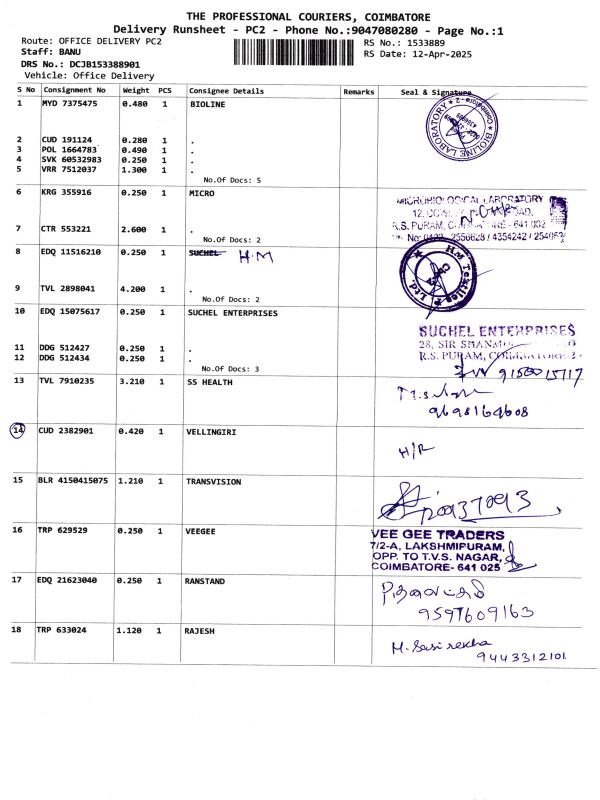 THE PROFESSIONAL COURIERS, COIMBATORE
Delivery Runsheet - PC2 - Phone No.:9047080280 - Page No.:1
Route: OFFICE DELIVERY PC2 RS No.: 1533889
Staff: BANU RS Date: 12-Apr-2025
DRS No.: DCJB153388901
Vehicle: Office Delivery
S No Consignment No Weight PCS Consignee Details Remarks Seal & Signature
1 MYD 7375475 0.480 1 BIOLINE
BIOLINE LABORATORY Coimbatore-2
2 CUD 191124 0.280 1 .
3 POL 1664783 0.490 1 .
4 SVK 60532983 0.250 1 .
5 VRR 7512037 1.300 1 .
No.Of Docs: 5
6 KRG 355916 0.250 1 MICRO
MICROBIOLOGICAL LABORATORY
12, ROAD,
R.S. PURAM, - 641 002
7 CTR 553221 2.600 1 .
No: 0422 2556628 / 4354242 /
No.Of Docs: 2
8 EDQ 11516210 0.250 1 SUCHEL H.M
H.M Textiles P Ltd.
9 TVL 2898041 4.200 1 .
No.Of Docs: 2
10 EDQ 15075617 0.250 1 SUCHEL ENTERPRISES
SUCHEL ENTERPRISES
28, SIR
R.S. PURAM, COIMBATORE-
11 DDG 512427 0.250 1 .
12 DDG 512434 0.250 1 .
No.Of Docs: 3
9150015117
13 TVL 7910235 3.210 1 SS HEALTH
9698164608
14 CUD 2382901 0.420 1 VELLINGIRI
H/R
15 BLR 4150415075 1.210 1 TRANSVISION
16 TRP 629529 0.250 1 VEEGEE
VEE GEE TRADERS
7/2-A, LAKSHMIPURAM,
OPP. TO T.V.S. NAGAR,
COIMBATORE- 641 025
17 EDQ 21623040 0.250 1 RANSTAND
9597609163
18 TRP 633024 1.120 1 RAJESH
M. Sasi rekha
9443312101